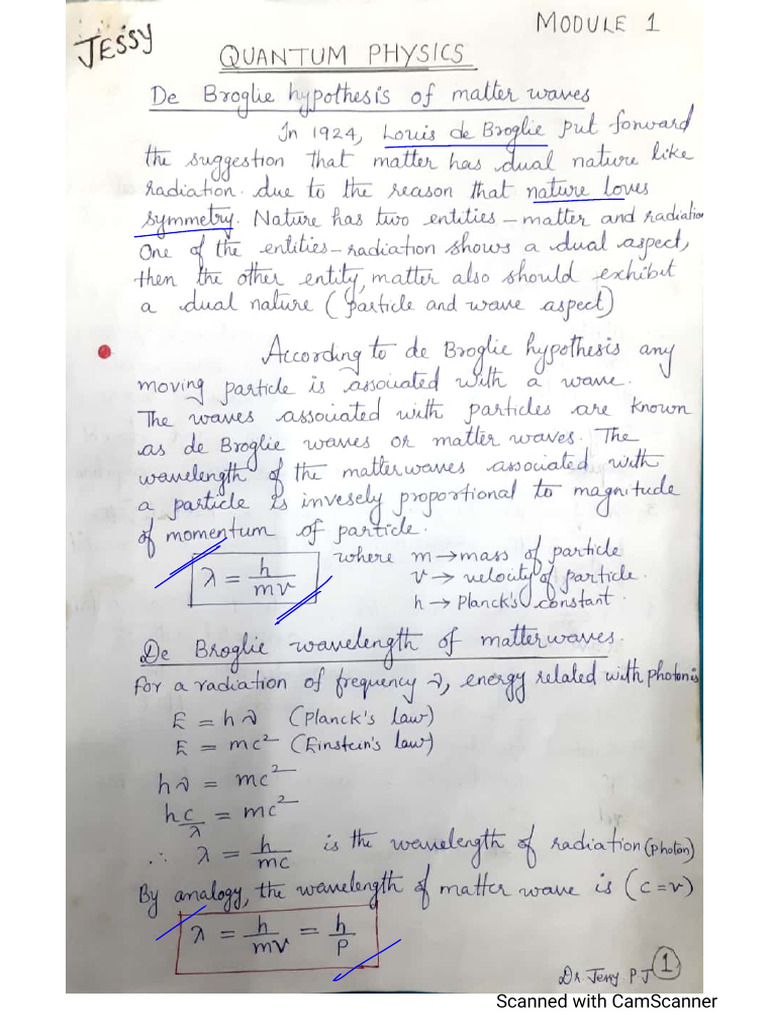 JESSY
MODULE 1
QUANTUM PHYSICS
De Broglie hypothesis of matter waves
In 1924, Louis de Broglie put forward
the suggestion that matter has dual nature like
radiation. due to the reason that nature loves
symmetry. Nature has two entities – matter and radiation
One of the entities – radiation shows a dual aspect,
then the other entity, matter also should exhibit
a dual nature (particle and wave aspect)
According to de Broglie hypothesis any
moving particle is associated with a wave.
The waves associated with particles are known
as de Broglie waves or matter waves. The
wavelength of the matterwaves associated with
a particle is invesely proportional to magnitude
of momentum of particle.
λ = h/mv
where m → mass of particle
v → velocity of particle.
h → Planck's constant.
De Broglie wavelength of matterwaves.
For a radiation of frequency ν, energy related with photon is
E = hν (Planck's law)
E = mc² (Einstein's law)
hν = mc²
h c/λ = mc²
∴ λ = h/mc is the wavelength of radiation (photon)
By analogy, the wavelength of matter wave is (c = v)
λ = h/mv = h/P
Dr. Jessy. P J
1
Scanned with CamScanner